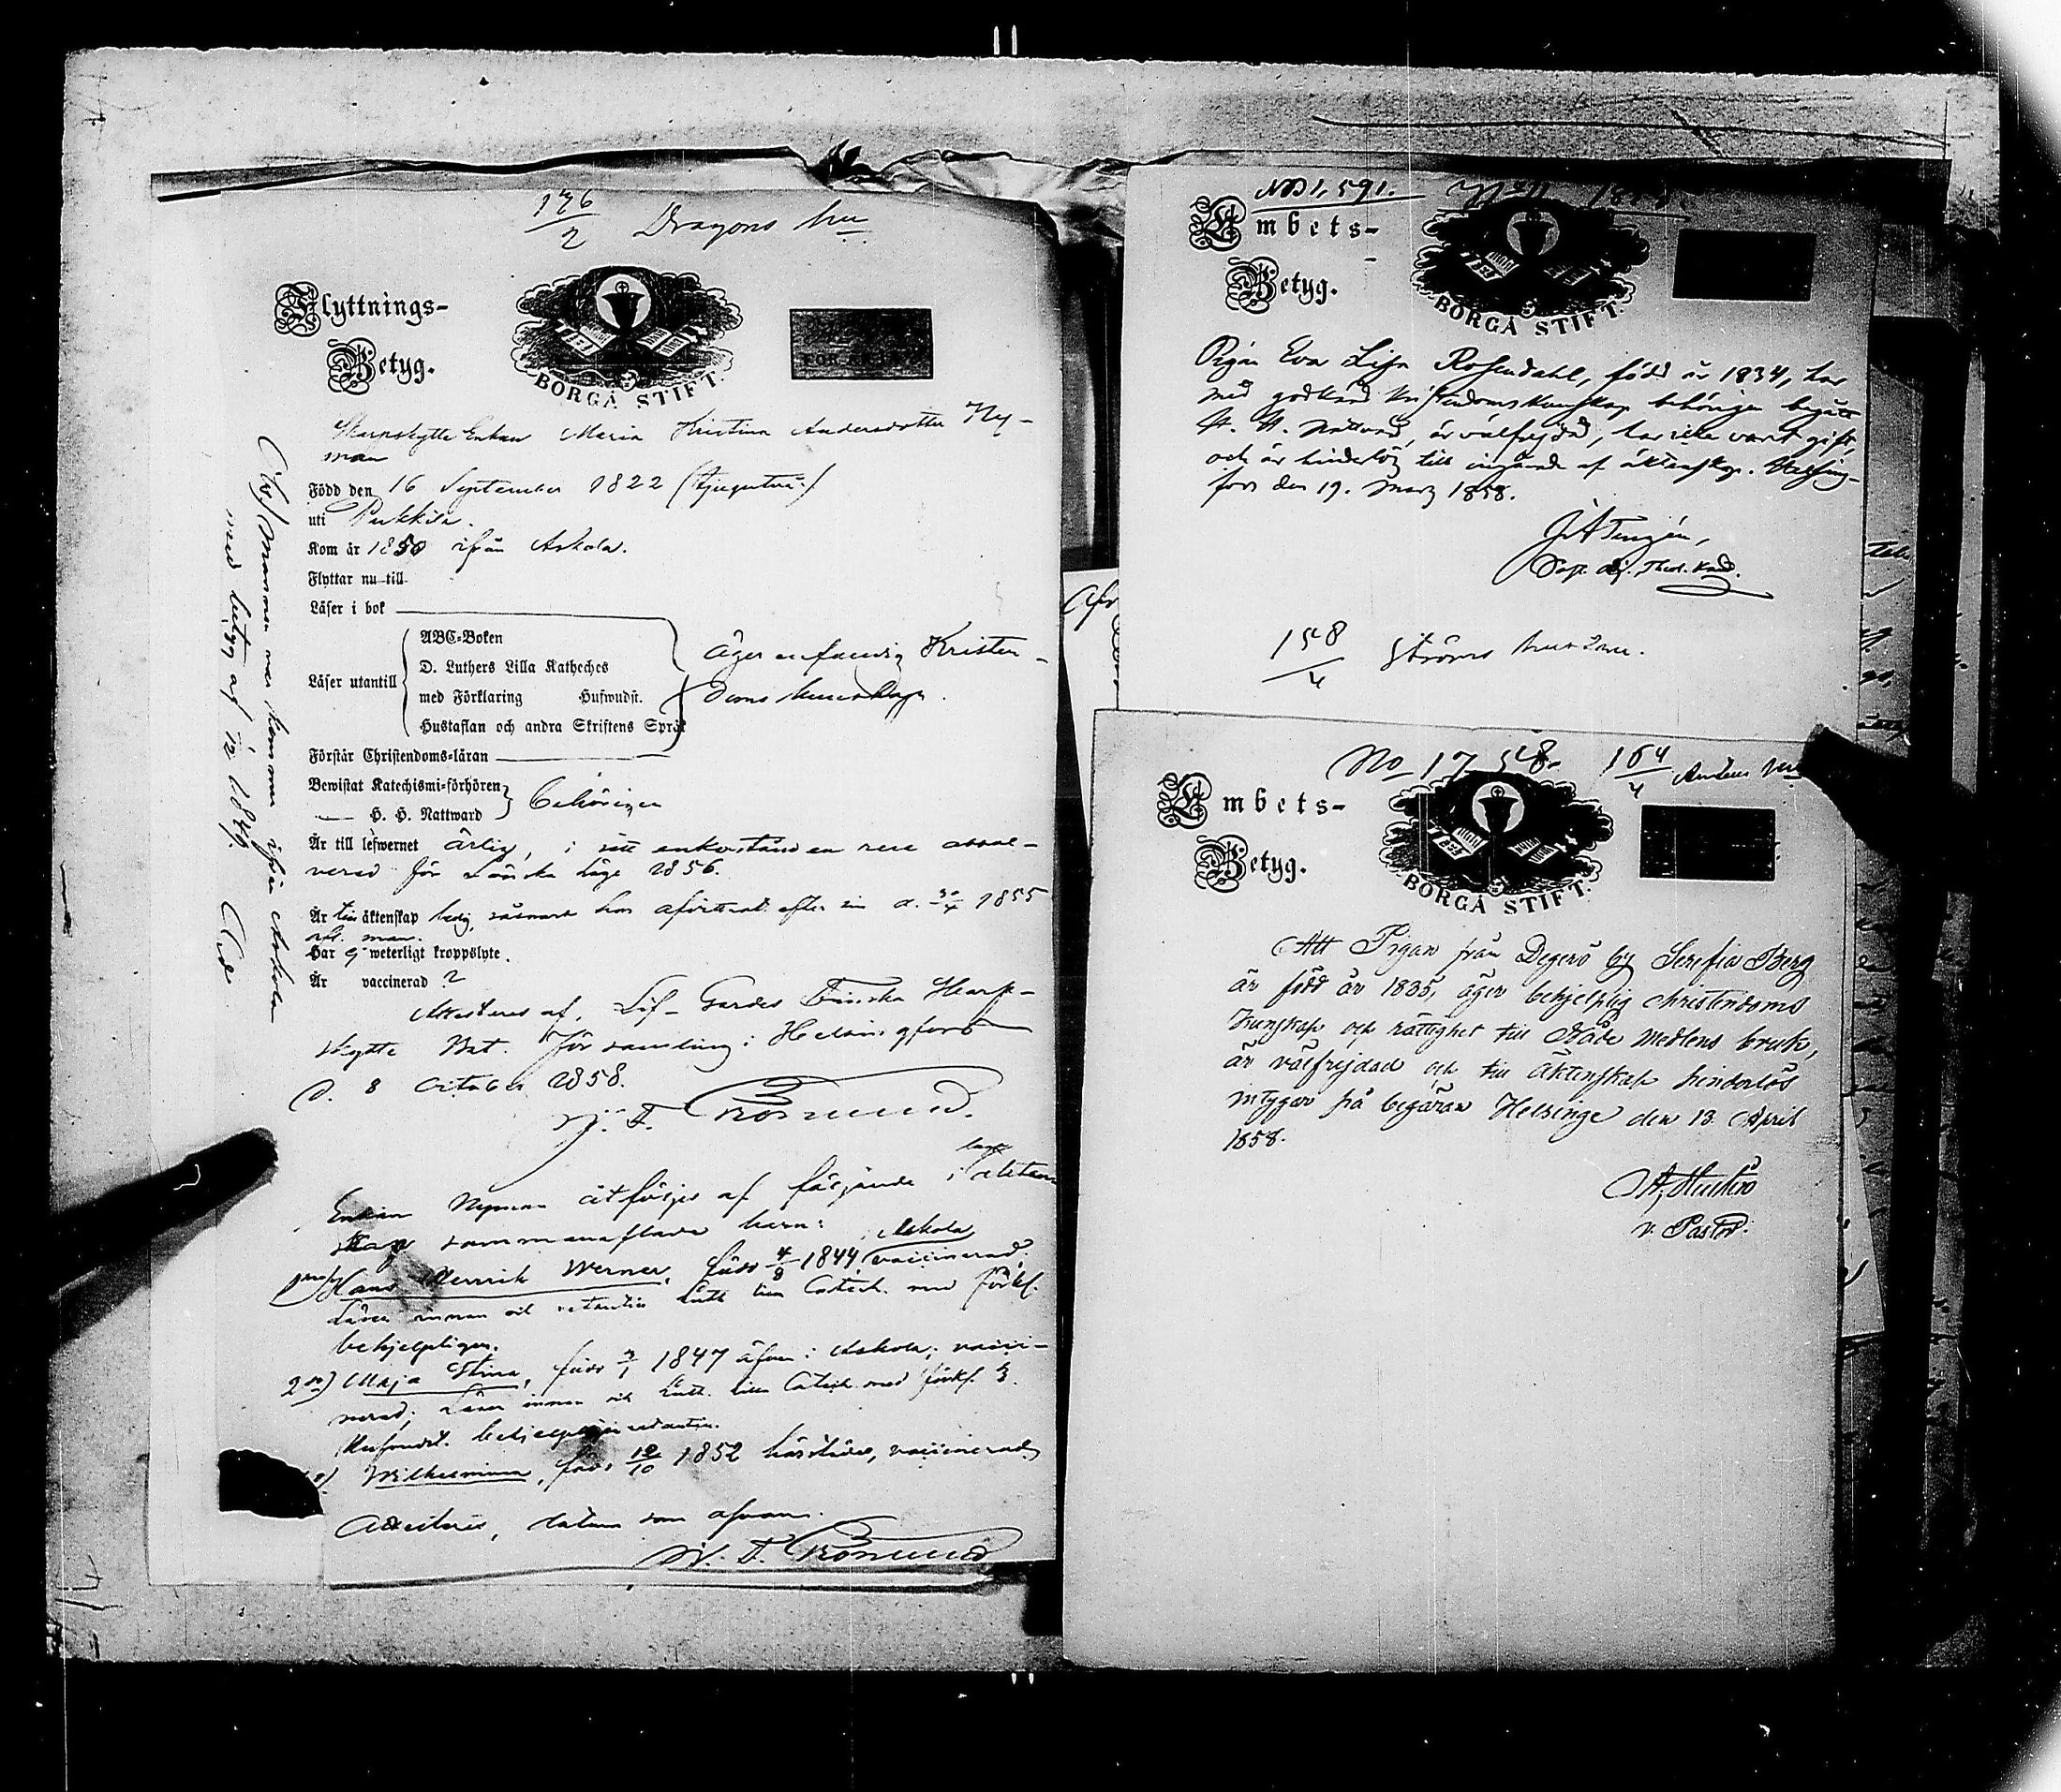 176/2 Dragons
Flyttnings-
Betyg.
BORGÅ STIFT.
Skarpskytte Enkan Maria Kristina Andersdotter Ny-
man
Född den 16 September 1822 (tjugutvå)
uti Pukkila.
Kom år 1850 ifrån Askola.
Flyttar nu till
Läser i bok
Läser utantill
ABC-Boken
D. Luthers Lilla Katheches
med Förklaring Hufwudst.
Hustaflan och andra Skriftens Språk
Äger enfaldig Kristen-
doms kunskap.
Förstår Christendoms-läran
Bewistat Katechismi-förhören
H. H. Nattward
behörigen
Är till lefwernet ärlig, i sitt enkestånd en resa
för 1856.
Är till äktenskap ledig, hos efter sin d. 30/4 1855
afl. man.
Har ej weterligt kroppslyte.
Är vaccinerad ?
Attesteras af, Lif-Gardes Finska Skarp-
skytte Bat. Församling i Helsingfors
d. 8 October 1858.
Enkan Nyman åtföljes af följande i lagl. äkten
skap sammanaflade barn:
1mo) Hans Henrik Werner, född 4/8 1844 i Askola, vaccinerad;
Läser innan och utantill Luth. lilla Catech. med förkl.
behjelpligen.
2do) Maja Stina, född 3/1 1847 äfven i Askola; vacci-
nerad; Läser innan och Luth. lilla Catech. med förkl. 3
Hufvudst. behjelpligen utantill.
Wilhelmina, född 12/10 1852 härstädes, vaccinerad
Attesteras, datum som ofvan.
Obs! Mannen var kommen ifrån Askola
med betyg af 1849.
No 1,591.
Embets-
Betyg.
BORGÅ STIFT.
Pigan Eva Lisa Rosendahl, född år 1834, har
med godkänd kristendomskunskap behörigen begått
H. H. Nattvard, är välfrejdad, har icke varit gift,
och är hinderlös till ingående af äktenskap. Helsing-
fors den 19. Mars 1858.
158/4 Ströms
No 17 58. 164/4
Embets-
Betyg.
BORGÅ STIFT.
Att Pigan från Degerö by Serefia Berg
är född år 1835, äger behjelplig christendoms
kunskap och rättighet till Nåde Medlens bruk,
är välfrejdad och till Äktenskap hinderlös
intygar på begäran Helsinge den 13 April
1858.
v. Pastor.